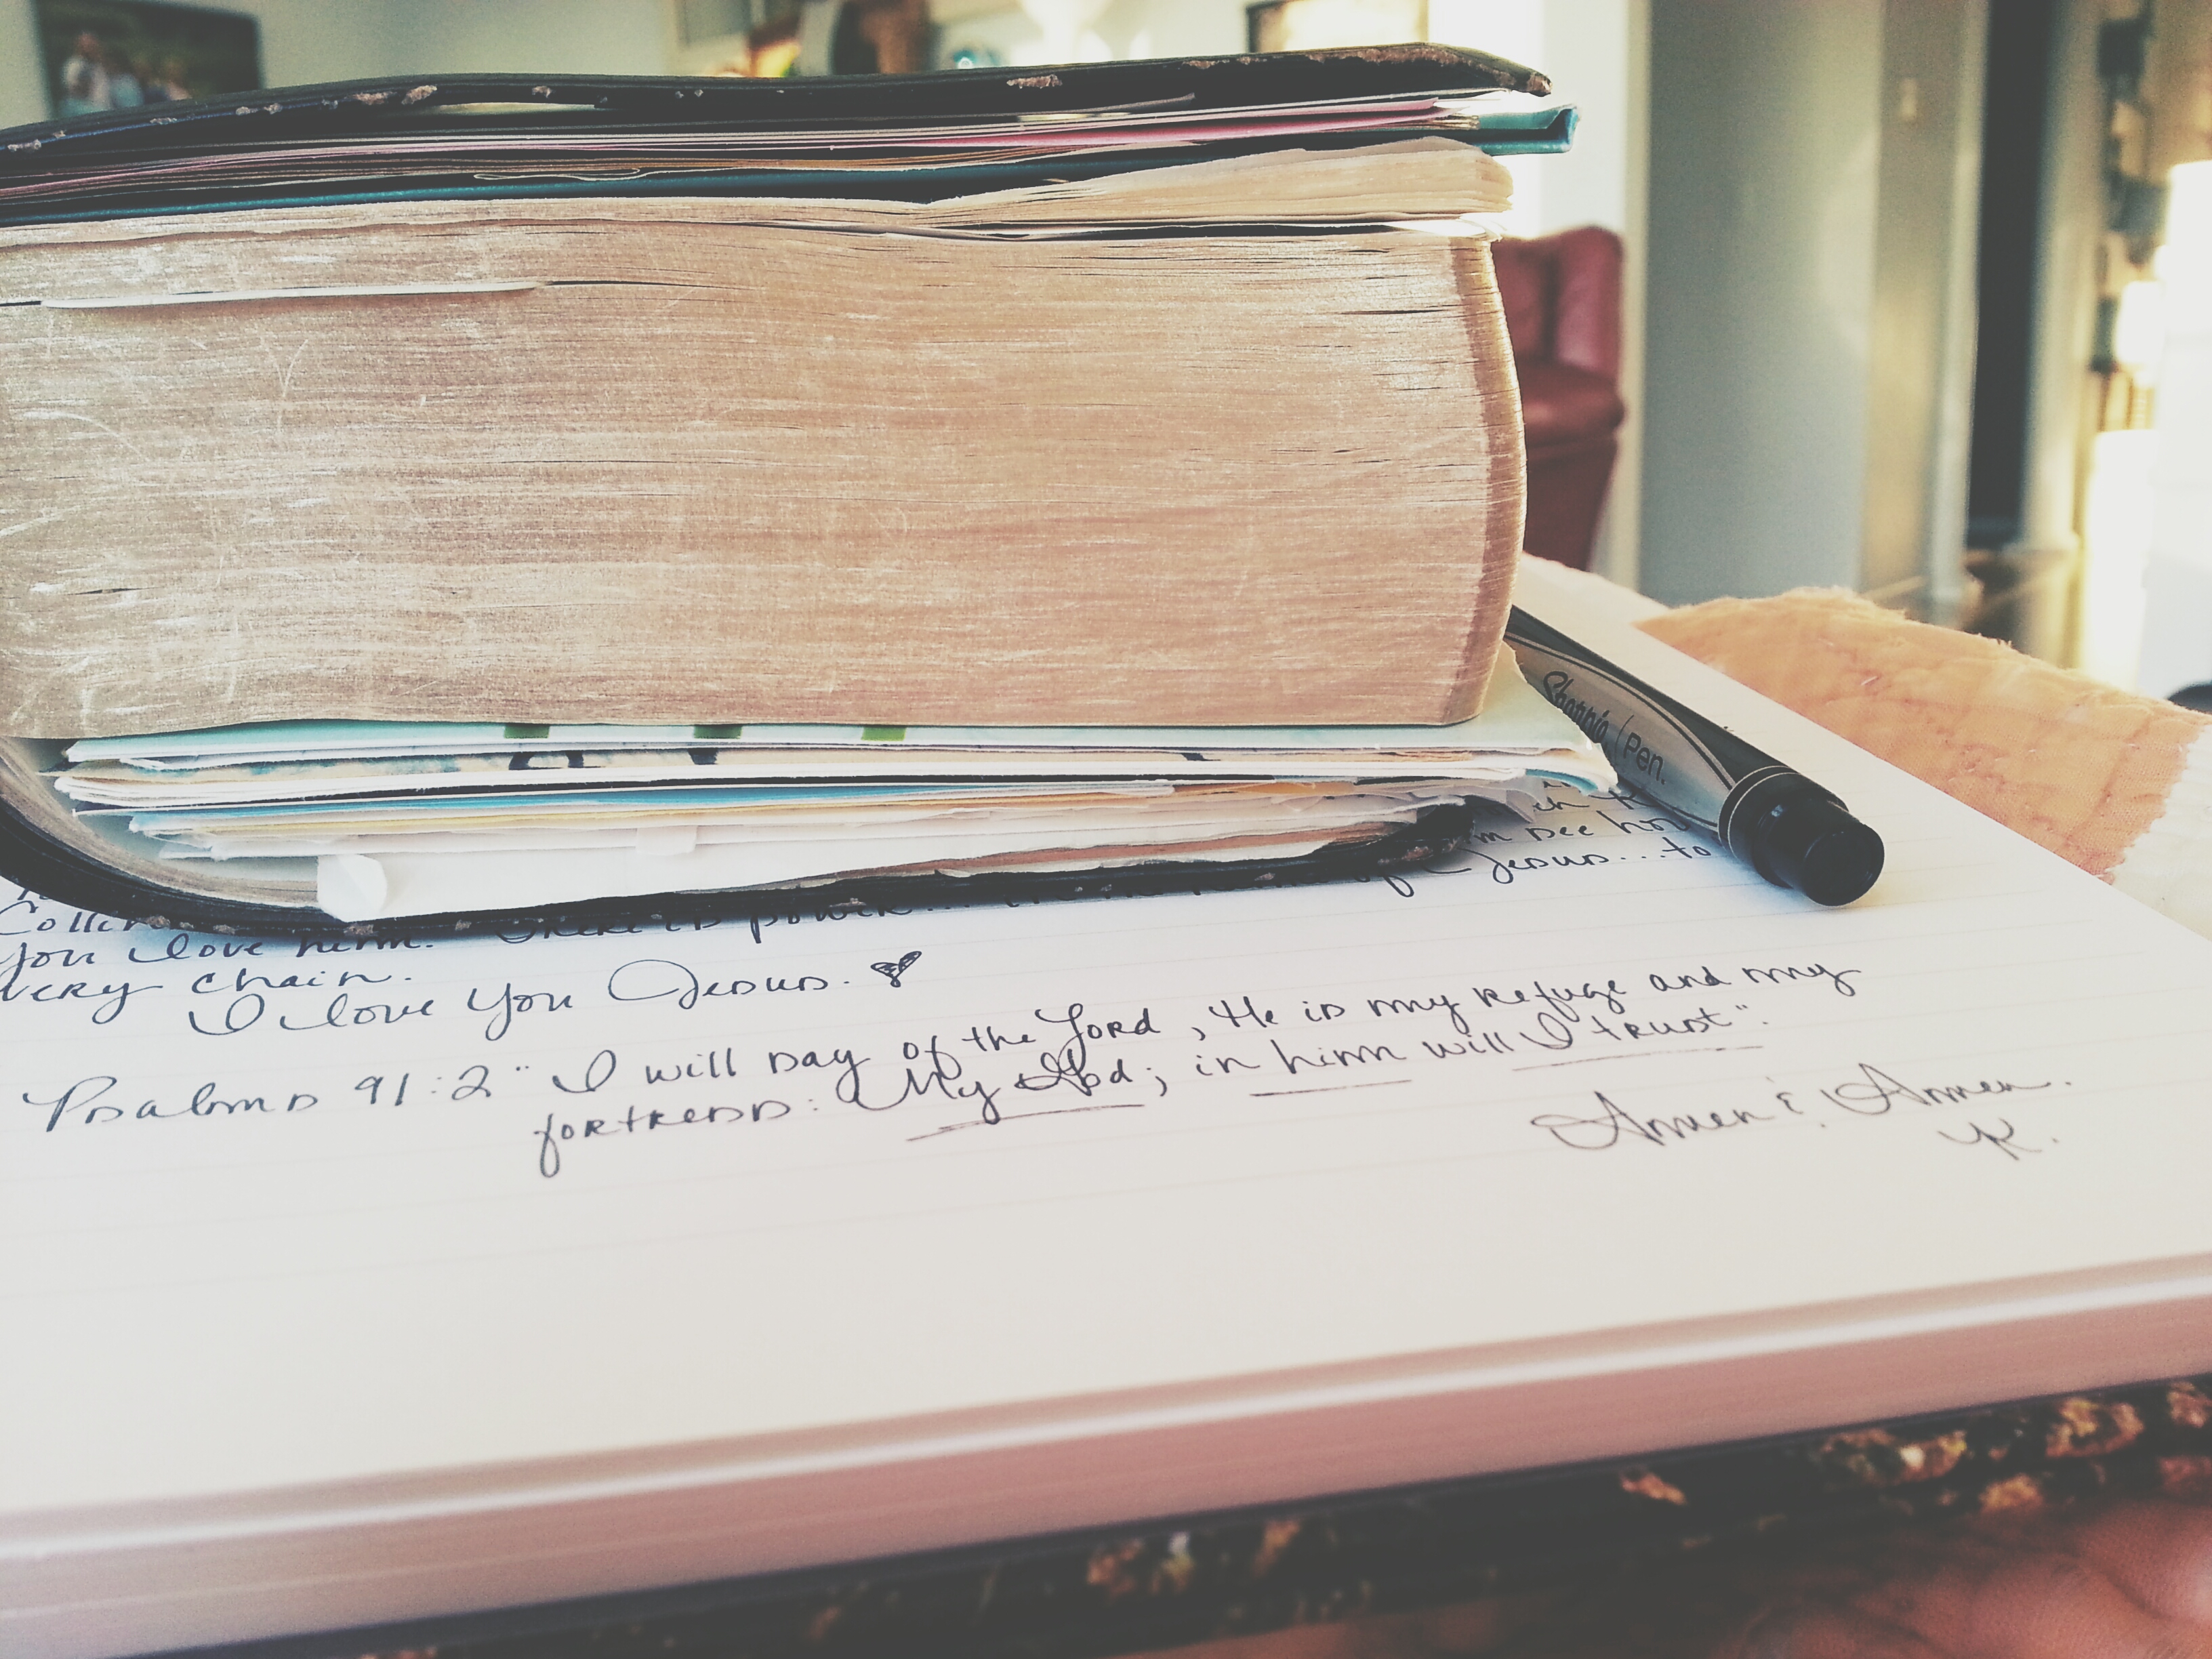 Sharpie Pen.
see
Jesus...to
You I love him. There is power... in the name of
very chain.
I love You Jesus.
Psalms 91:2 "I will say of the Lord, He is my refuge and my
fortress: My God; in him will I trust".
Amen & Amen.
K.